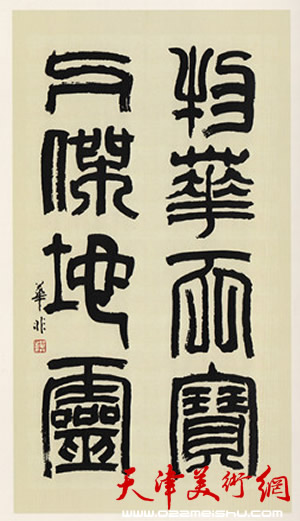 物華天寶
人傑地靈
華非
天津美術網
www.022meishu.com